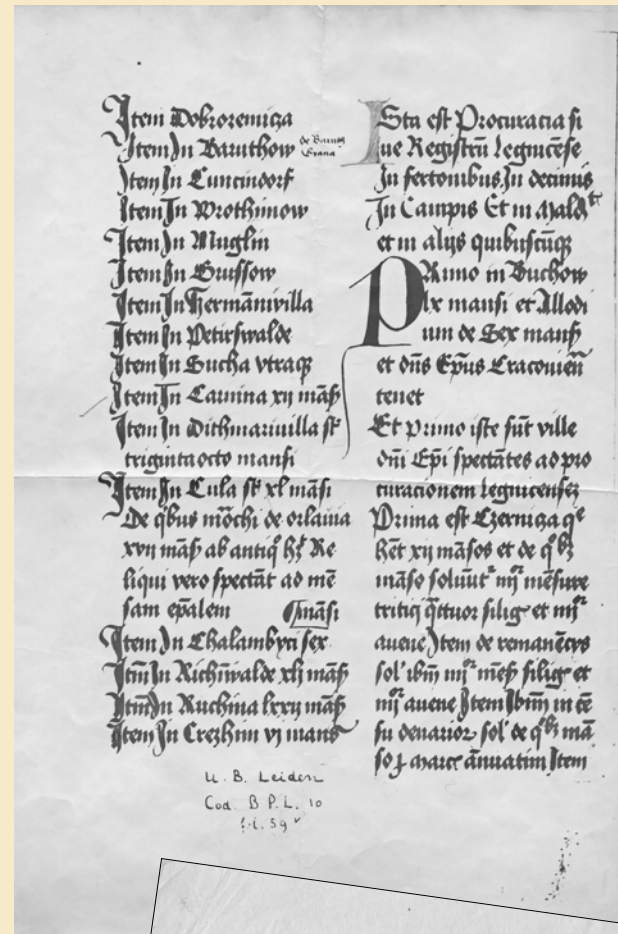 Item Dobroremicza
Item In Baruthow
Item In Cuncindorf
Item In Wrothinow
Item In Muglin
Item In Grussow
Item In Hermānivilla
Item In Petirswalde
Item In Sucha vtraqꝫ
Item In Carnina xij māss
Item In Dithmarivilla st
triginta octo mansi
Item In Cula st xl māsi
De qͥbus mōchi de orlauia
xvij māss ab antiqͦ Re
liqui vero spectāt ad mē
sam epālem māsi
Item In Chalambyci sex
Itm̄ In Richīwalde xlij māss
Itm̄ In Ruchina lxxij māss
Item In Crezhim vj mans
U. B. Leiden
Cod. B. P. L. 10
59ᵛ
Ista est Procuracia si
ue Registrū legnicēse
In fertonibus In decimis
In Campis Et in
et in alijs quibuscūqꝫ
PRimo in Buchow
lx mansi et Allodi
um de Sex manss
et dn̄s Ep̄us Cracovien̄
tenet
Et primo iste sūt ville
dn̄i Ep̄i spectātes ad pro
curacionem legnicensez
Prima est Czernicza qͤ
hēt xij māsos et de qͦlꝫ
māso soluūt mēsure
tritici qͣttuor silig et
auene Item de remanēcijs
sol' ibīm mēss silig et
auene Item Ibīm in cē
su denarior sol' de qͦlꝫ mā
so marce ānuatim Item